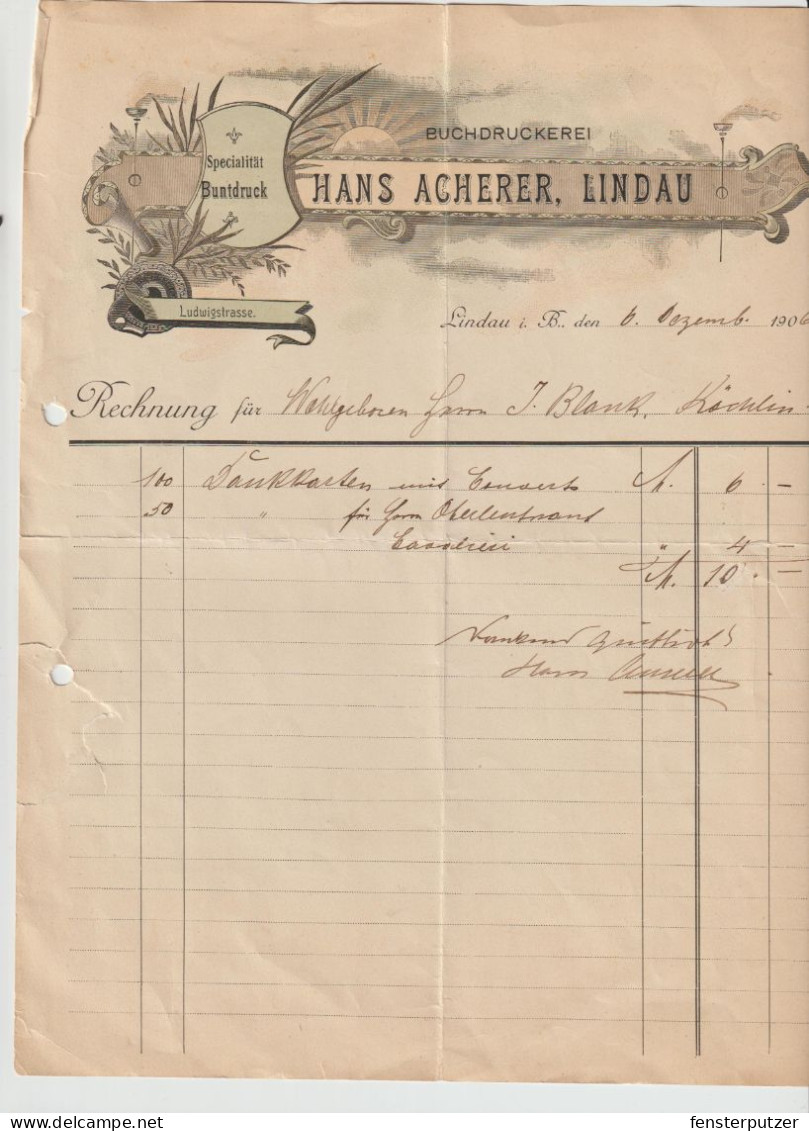 BUCHDRUCKEREI
Specialität
Buntdruck
HANS ACHERER, LINDAU
Ludwigstrasse.
Lindau i. B., den 6. Dezemb. 1906
Rechnung für Wohlgeboren Herrn J. Blank, Köchlin
100 Dankkarten mit Couverts M. 6 . –
50 " für Herrn Oberleutnant
" 4 –
M. 10 . –
Dankend quittirt
Hans
delcampe.net
fensterputzer